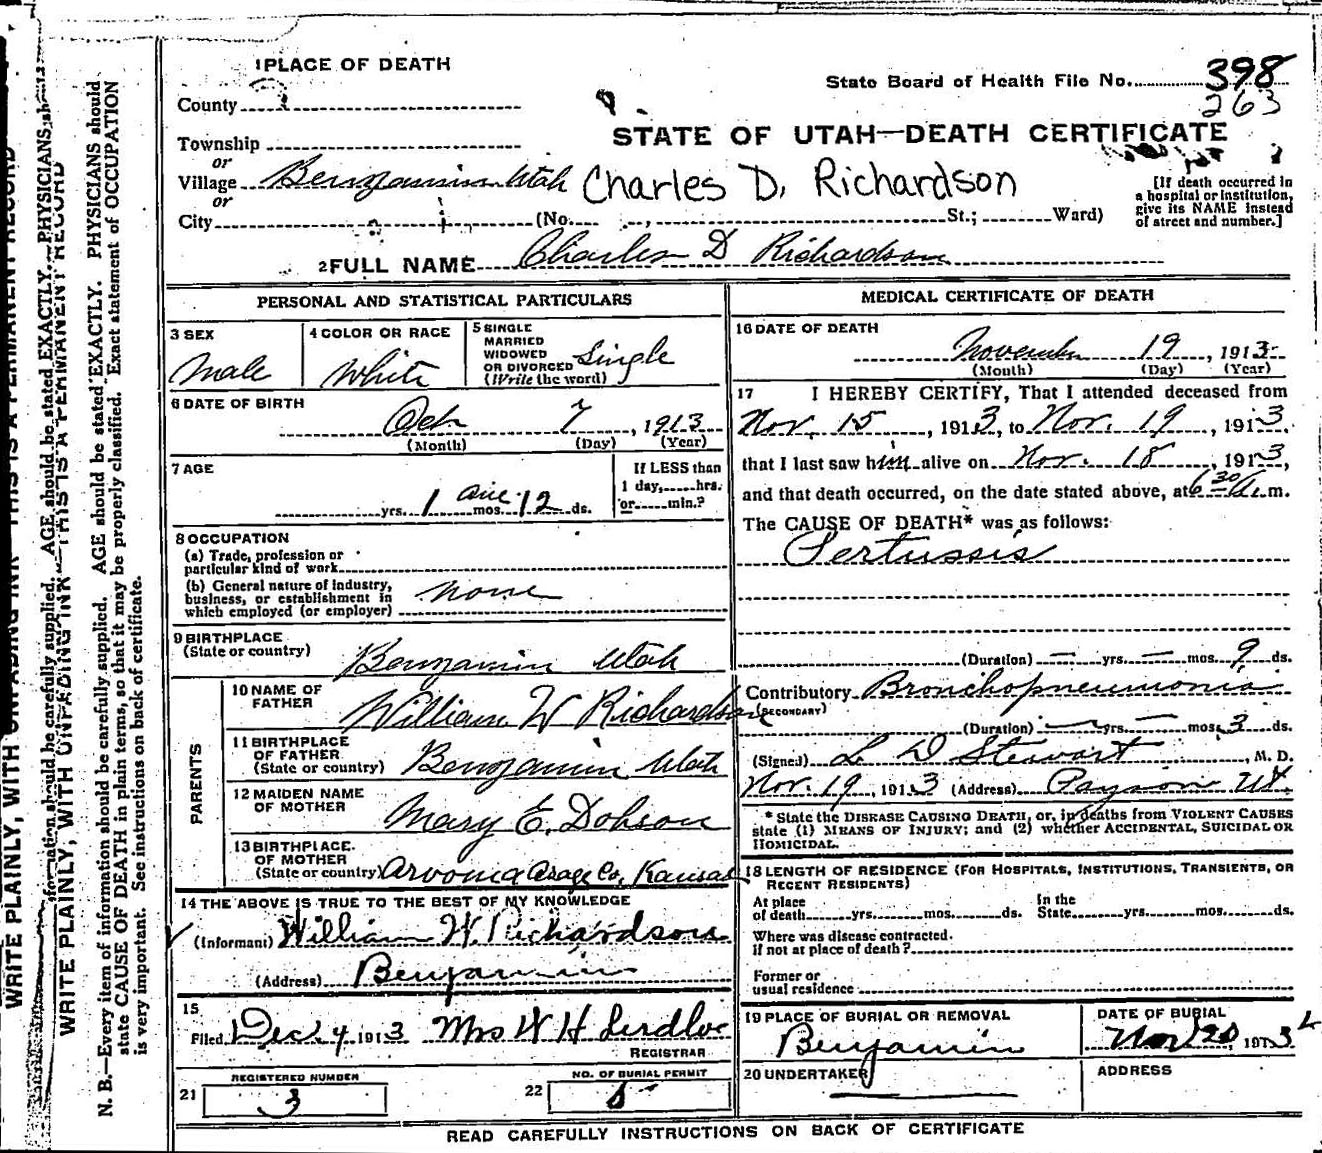 1 PLACE OF DEATH
State Board of Health File No. 398
263
County
STATE OF UTAH—DEATH CERTIFICATE
Township
or
Village Benjamin Utah Charles D. Richardson
or
City (No. , St.; Ward)
[If death occurred in
a hospital or institution,
give its NAME instead
of street and number.]
2 FULL NAME Charles D Richardson
PERSONAL AND STATISTICAL PARTICULARS
3 SEX
Male
4 COLOR OR RACE
White
5 SINGLE
MARRIED
WIDOWED
OR DIVORCED Single
(Write the word)
6 DATE OF BIRTH
Oct 7, 1913
(Month) (Day) (Year)
7 AGE
yrs. 1 mos. 12 ds.
If LESS than
1 day, hrs.
or min.?
8 OCCUPATION
(a) Trade, profession or
particular kind of work
(b) General nature of industry,
business, or establishment in
which employed (or employer) none
9 BIRTHPLACE
(State or country) Benjamin Utah
PARENTS
10 NAME OF
FATHER William W Richardson
11 BIRTHPLACE
OF FATHER
(State or country) Benjamin Utah
12 MAIDEN NAME
OF MOTHER Mary E. Dobson
13 BIRTHPLACE
OF MOTHER
(State or country) Arvonia Osage Co, Kansas
14 THE ABOVE IS TRUE TO THE BEST OF MY KNOWLEDGE
(Informant) William W. Richardson
(Address) Benjamin
15
Filed Dec 4 1913 Mrs W H
REGISTRAR
REGISTERED NUMBER
21 3
NO. OF BURIAL PERMIT
22
MEDICAL CERTIFICATE OF DEATH
16 DATE OF DEATH
November 19, 1913
(Month) (Day) (Year)
17 I HEREBY CERTIFY, That I attended deceased from
Nov. 15, 1913, to Nov. 19, 1913,
that I last saw him alive on Nov. 18, 1913,
and that death occurred, on the date stated above, at 6 30 A. m.
The CAUSE OF DEATH* was as follows:
Pertussis
(Duration) — yrs. — mos. 9 ds.
Contributory Bronchopneumonia
(SECONDARY)
(Duration) — yrs. — mos. 3 ds.
(Signed) L D Stewart, M. D.
Nov. 19, 1913 (Address) Payson Ut.
* State the DISEASE CAUSING DEATH, or, in deaths from VIOLENT CAUSES
state (1) MEANS OF INJURY; and (2) whether ACCIDENTAL, SUICIDAL OR
HOMICIDAL.
18 LENGTH OF RESIDENCE (FOR HOSPITALS, INSTITUTIONS, TRANSIENTS, OR
RECENT RESIDENTS)
At place
of death yrs. mos. ds.
In the
State yrs. mos. ds.
Where was disease contracted.
if not at place of death?
Former or
usual residence
19 PLACE OF BURIAL OR REMOVAL
Benjamin
DATE OF BURIAL
Nov 20, 1913
20 UNDERTAKER
ADDRESS
READ CAREFULLY INSTRUCTIONS ON BACK OF CERTIFICATE
WRITE PLAINLY, WITH UNFADING INK—THIS IS A PERMANENT RECORD
WRITE PLAINLY, WITH UNFADING INK—THIS IS A PERMANENT RECORD
N. B.—Every item of information should be carefully supplied. AGE should be stated EXACTLY. PHYSICIANS should
state CAUSE OF DEATH in plain terms, so that it may be properly classified. Exact statement of OCCUPATION
is very important. See instructions on back of certificate.